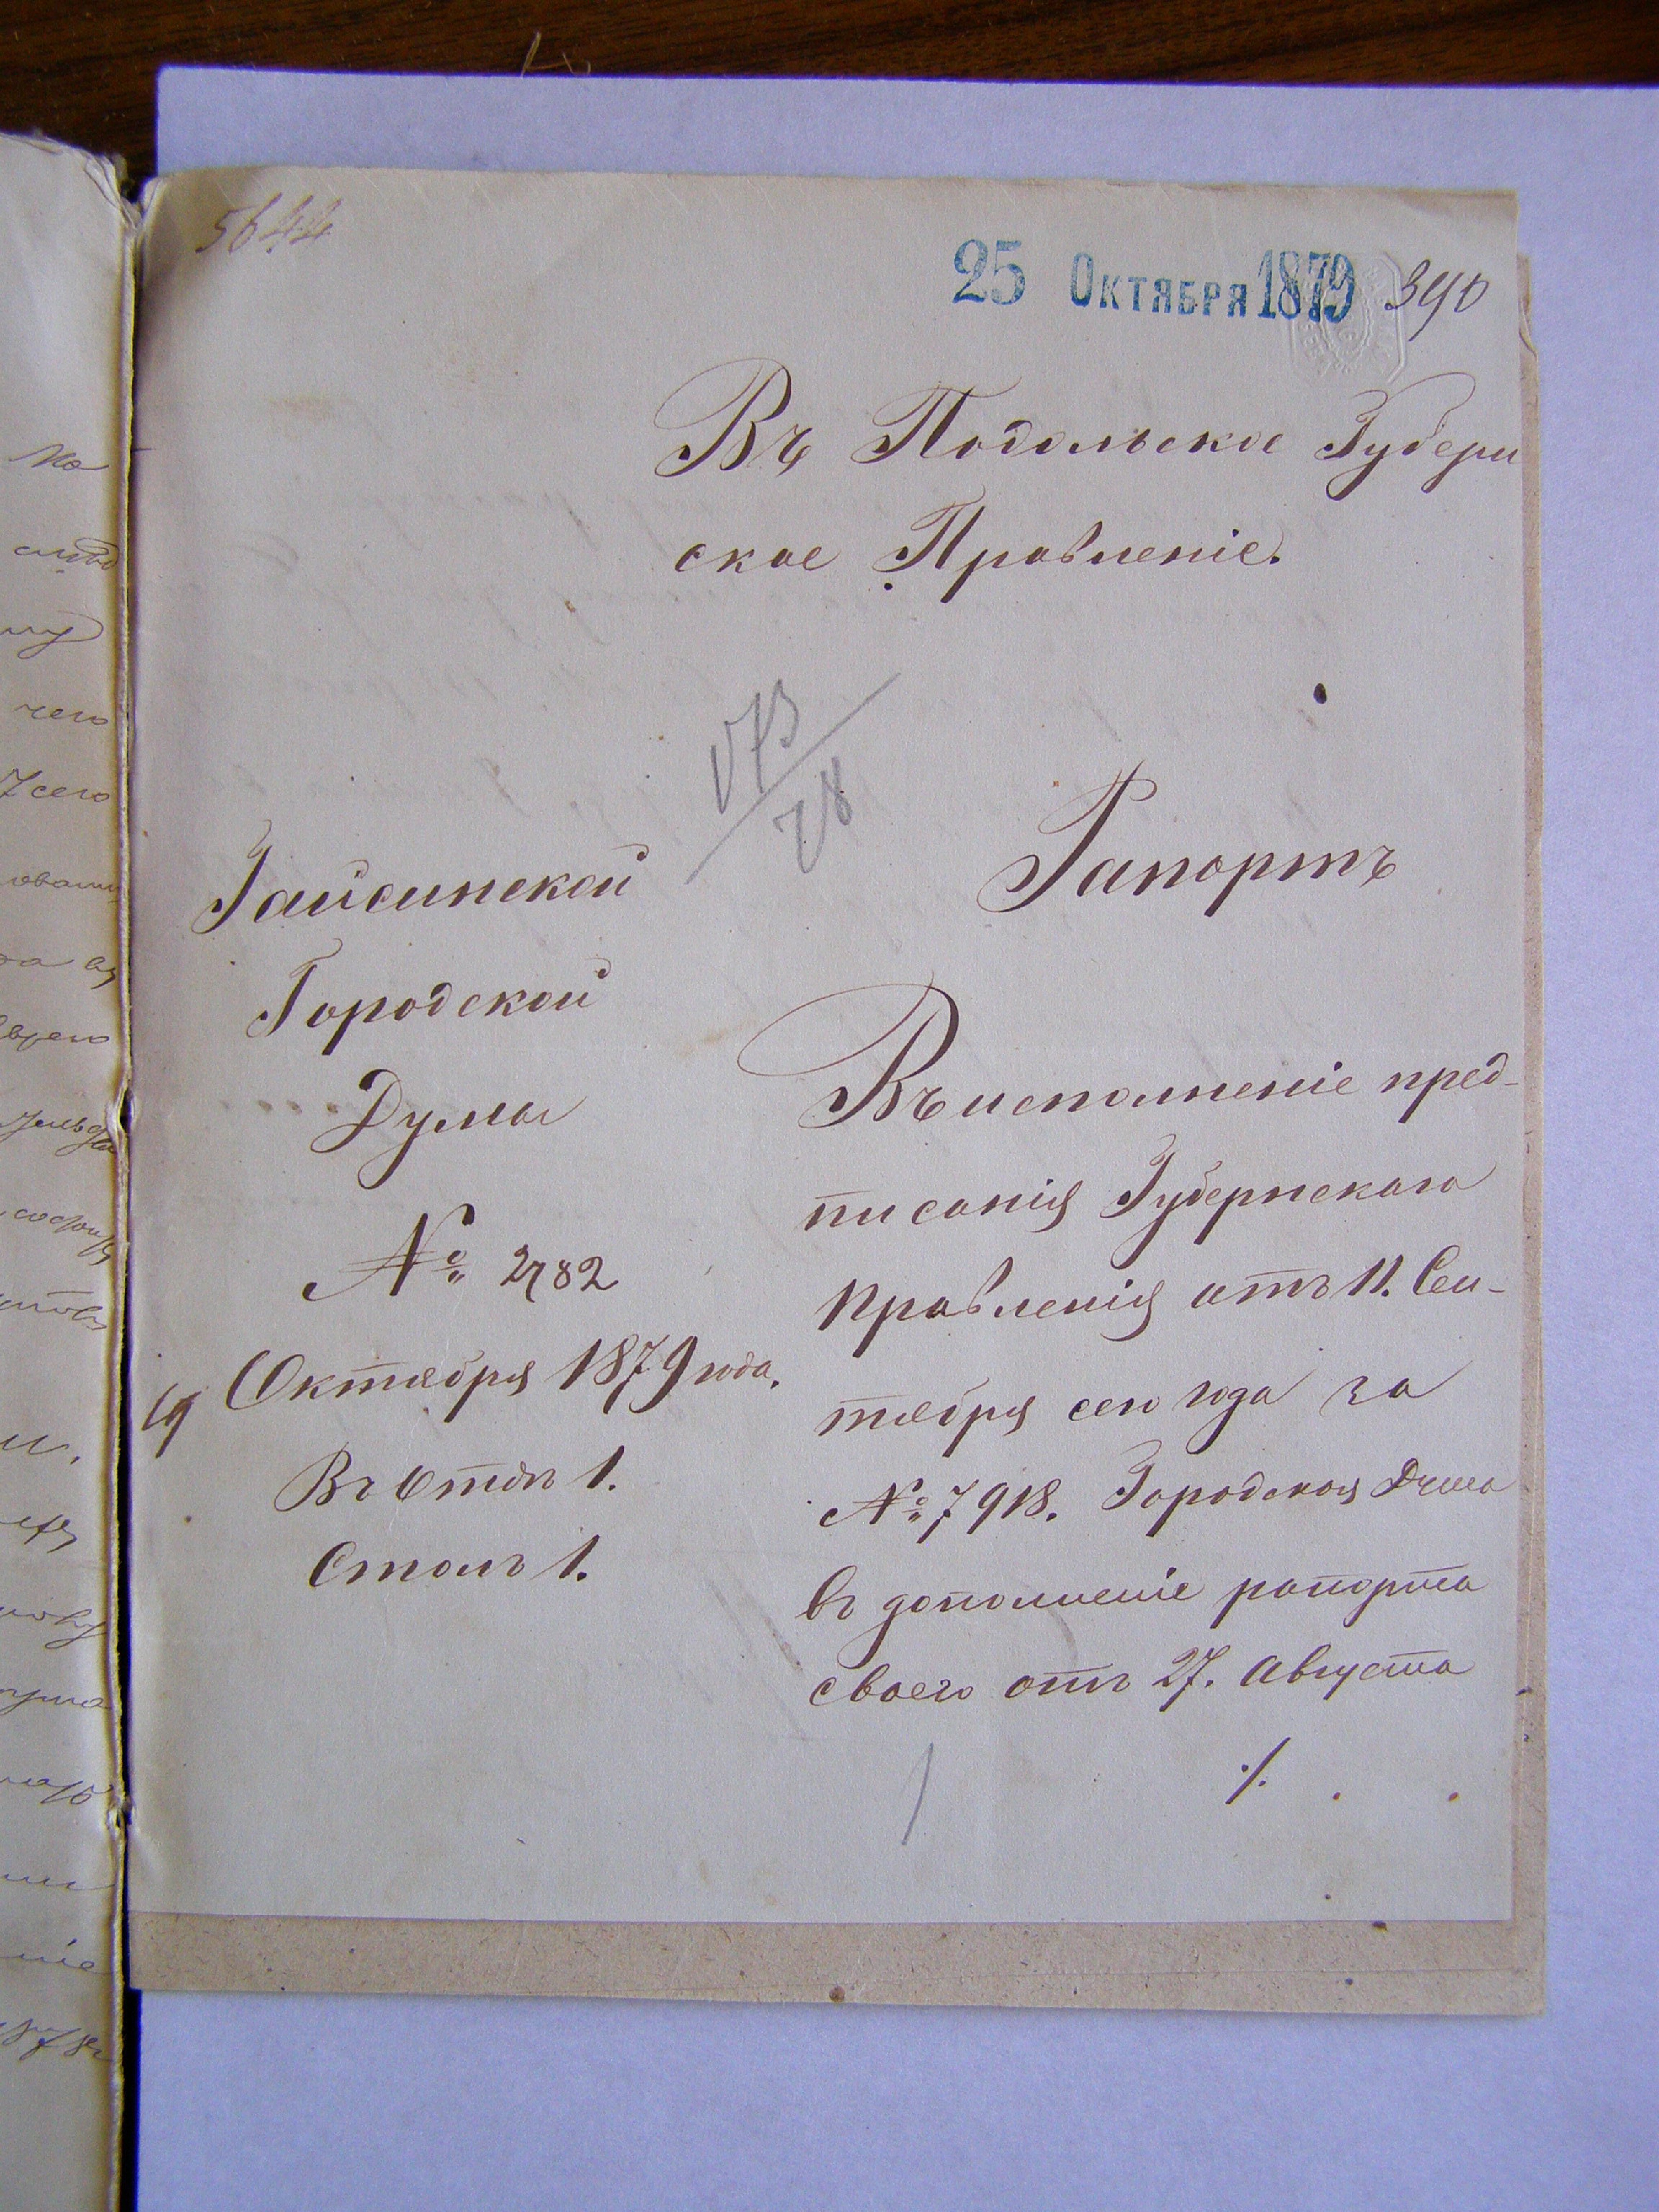 5644
25 Октября 1879
390
Въ Подольское Губерн
ское Правленіе.
Гайсинской
Городской
Думы
№ 2782
19 Октября 1879 года.
Въ Отдъ 1.
Столъ 1.
Рапортъ
Въ исполненіе пред-
писанія Губернскаго
Правленія отъ 11. Сен-
тября сего года за
№ 7918. Городская Дума
въ дополненіе рапорта
своего отъ 27. Августа
./.